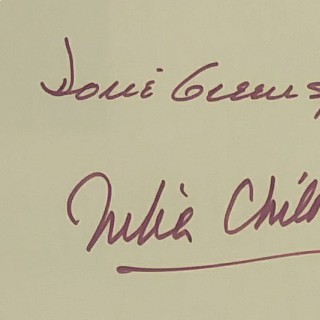 Dorie Greens
Julia Child